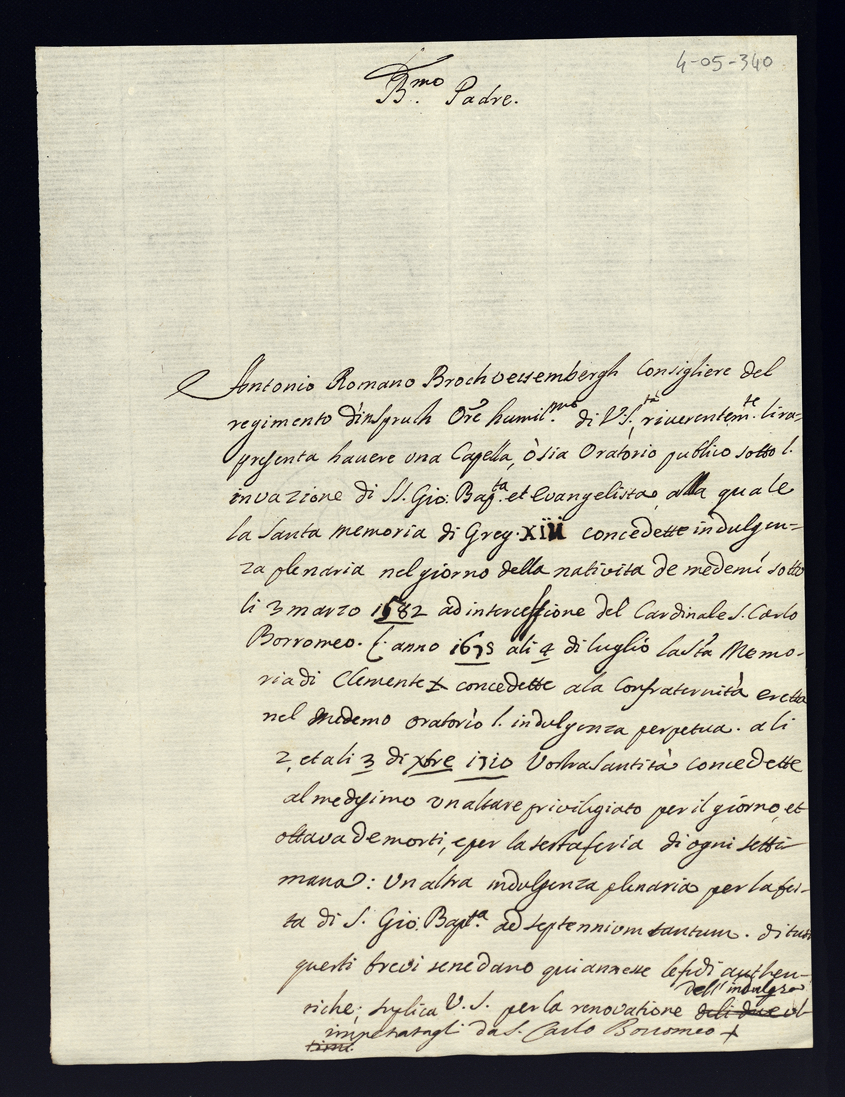 4-05-340
B.mo Padre.
Antonio Romano Brochweisembergh Consigliere del
regimento d'inspruk Ore humil.mo di V. S.tà riverentem.te li ra-
presenta havere una Capella, ò sia Oratorio publico sotto l.
invazione di SS. Gio: Bap.ta et evangelista, alla quale
la santa memoria di Greg. XIII concedette indulgen=
za plenaria nel giorno della nativita de medemi sotto
li 3 marzo 1582 ad intercessione del Cardinale S. Carlo
Borromeo. L. anno 1675 ali 4 di luglio la S.ta Memo-
ria di Clemente X concedette ala Confraternità eretta
nel medemo oratorio l. indulgenza perpetua. ali
2, et ali 3 di xbre 1710 Vostra Santità concedette
al medesimo un altare priviligiato per il giorno, et
ottava de morti, e per la sesta feria di ogni setti-
mana: Un altra indulgenza plenaria per la fes-
ta di S. Gio: Bap.ta ad septennium tantum. di tutti
questi brevi se ne dano qui annesse le fidi authen-
dell' indulgza
tiche; suplica V. S. per la renovatione deli due ul-
impetratagli da S. Carlo Borromeo +
timi.